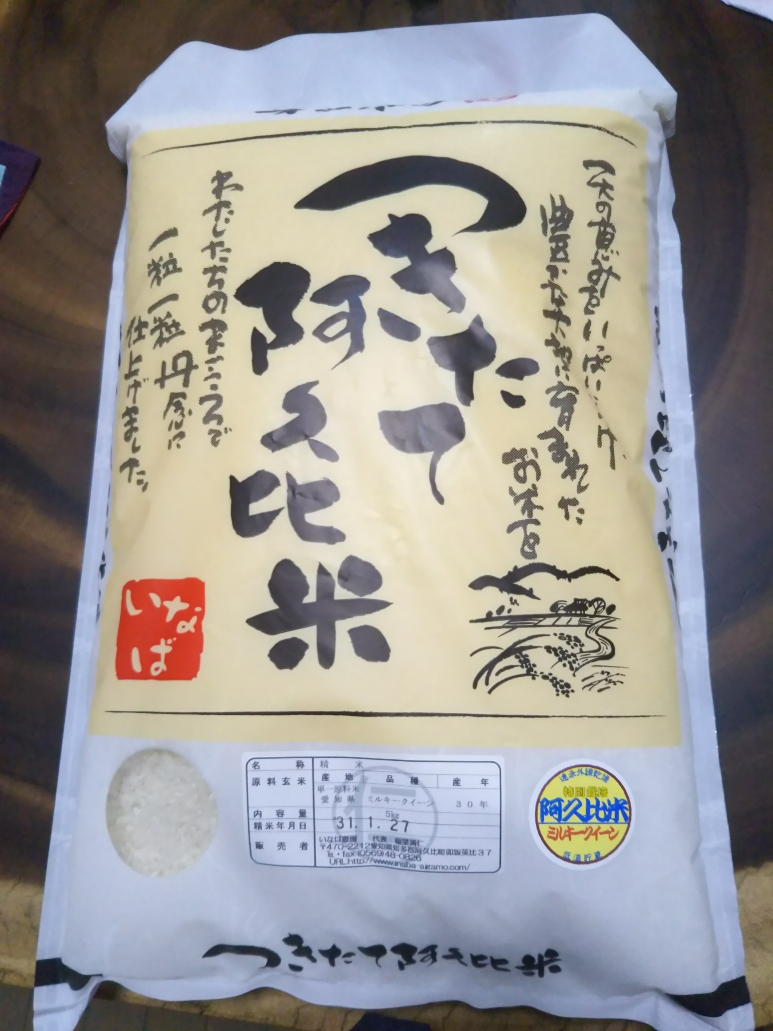 天の恵みをいっぱいうけ
豊かな大地に育まれた
お米を
つきたて
阿久比米
わたしたちのまごころで
一粒一粒丹念に
仕上げました。
いなば
名 称 精 米
原料玄米 産地 品種 産年
単一原料米
愛知県 ミルキークイーン 30年
内容量 5kg
精米年月日 31.1.27
販売者 いなば農園 代表
〒470-2212愛知県知多郡阿久比町
Tel・fax(0569)48-0826
遠赤外線乾燥
特別栽培
阿久比米
ミルキークイーン
低温貯蔵
つきたて阿久比米